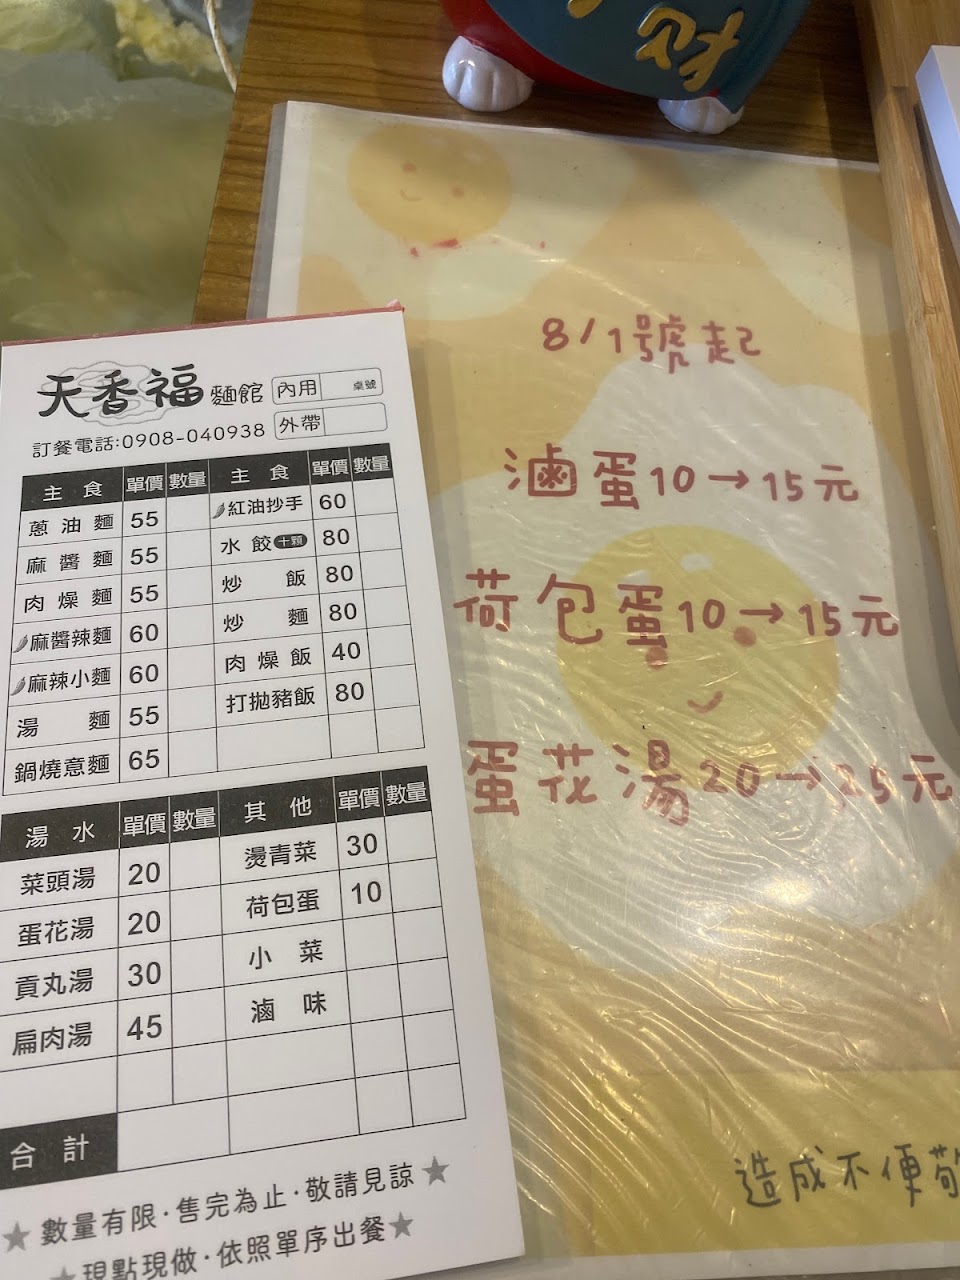 天香福麵館 內用 桌號
訂餐電話:0908-040938 外帶
主食 單價 數量 主食 單價 數量
蔥油麵 55 紅油抄手 60
麻醬麵 55 水餃十顆 80
肉燥麵 55 炒飯 80
麻醬辣麵 60 炒麵 80
麻辣小麵 60 肉燥飯 40
湯麵 55 打拋豬飯 80
鍋燒意麵 65
湯水 單價 數量 其他 單價 數量
菜頭湯 20 燙青菜 30
蛋花湯 20 荷包蛋 10
貢丸湯 30 小菜
扁肉湯 45 滷味
合計
★數量有限·售完為止·敬請見諒★
★現點現做·依照單序出餐★
8/1號起
滷蛋10→15元
荷包蛋10→15元
蛋花湯20→25元
造成不便敬